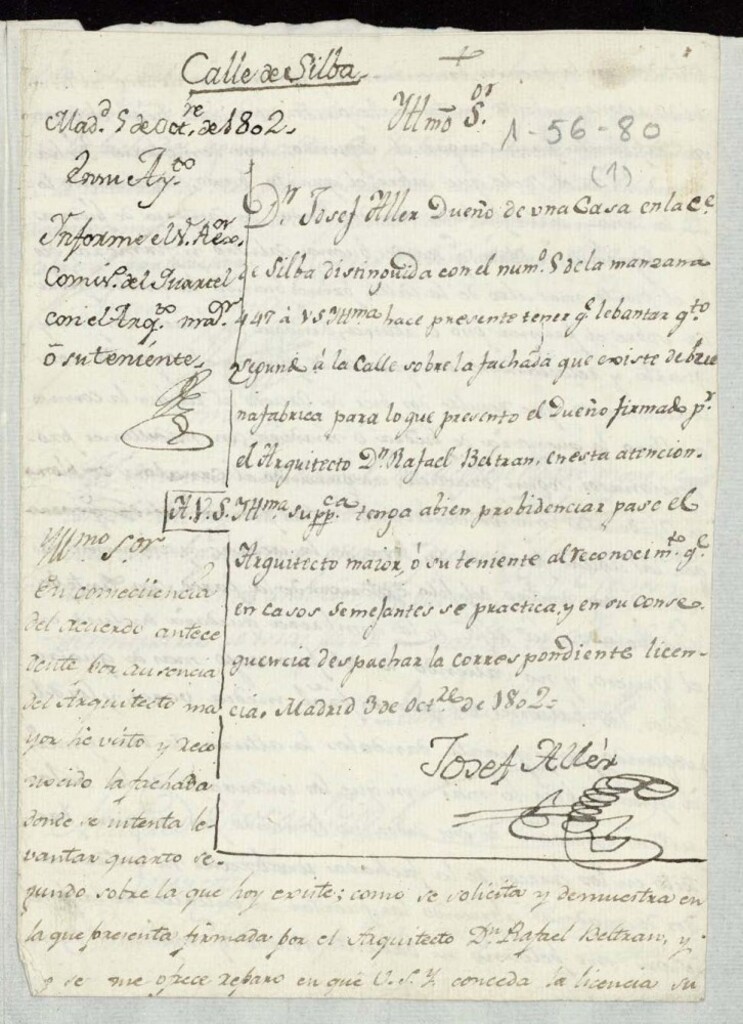 Calle de Silba
+
Yllmõ S.ᵒʳ
1-56-80
(1)
Mad.ᵈ 5 de Oct.ʳᵉ de 1802.
En su Ay.ᵗᵒ
Informe el S.
Comis.º del Quartel
con el Arq.ᵗᵒ ma.ᵒʳ
ò su teniente.
D.ⁿ Josef Aller Dueño de una Casa en la C.ᵉ
de Silba distinguida con el num.º 5 de la manzana
447 â VS Yllᵐᵃ hace presente tener q.ᵉ lebantar q.ᵗᵒ
segundo á la Calle sobre la fachada que existe de bue
na fabrica para lo que presento el Dueño firmado p.ʳ
el Arquitecto D.ⁿ Rafael Beltran, en esta atencion.
A.V.S. Yllᵐᵃ supp.ᶜᵃ tenga abien probidenciar pase el
Arquitecto maior, ó su teniente al reconocim.ᵗᵒ q.ᵉ
en casos semejantes se practica, y en su conse-
quencia despachar la correspondiente licen-
cia. Madrid 3 de Oct.ʳᵉ de 1802=
Josef Allér
Yllᵐᵒ S.ᵒʳ
En consequencia
del acuerdo antece
dente por ausencia
del Arquitecto ma
yor he visto y reco
nocido la fachada
donde se intenta le-
vantar quarto se-
gundo sobre la que hoy existe; como se solicita y demuestra en
la que presenta firmada por el Arquitecto D.ⁿ Rafael Beltran, y
no se me ofrece reparo en que V.S.Y. conceda la licencia su